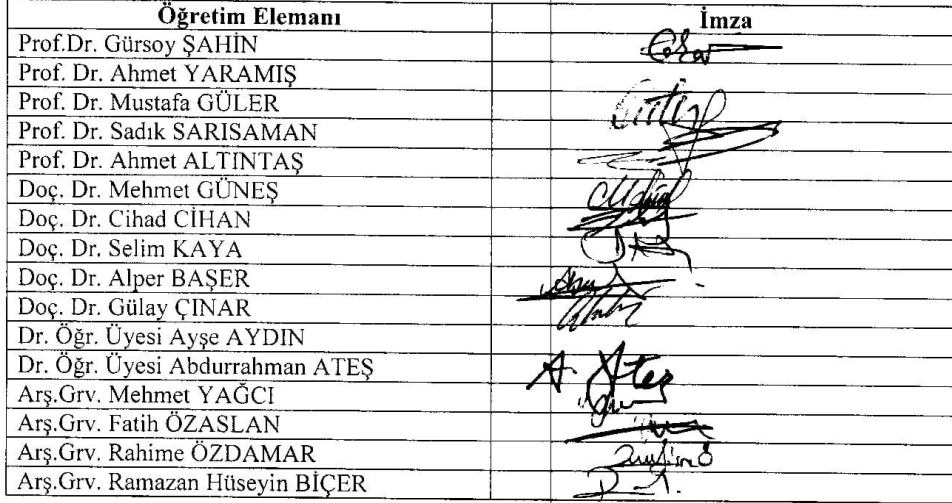 Öğretim Elemanı İmza
Prof.Dr. Gürsoy ŞAHİN
Prof. Dr. Ahmet YARAMIŞ
Prof. Dr. Mustafa GÜLER
Prof. Dr. Sadık SARISAMAN
Prof. Dr. Ahmet ALTINTAŞ
Doç. Dr. Mehmet GÜNEŞ
Doç. Dr. Cihad CİHAN
Doç. Dr. Selim KAYA
Doç. Dr. Alper BAŞER
Doç. Dr. Gülay ÇINAR
Dr. Öğr. Üyesi Ayşe AYDIN
Dr. Öğr. Üyesi Abdurrahman ATEŞ A. Ateş
Arş.Grv. Mehmet YAĞCI
Arş.Grv. Fatih ÖZASLAN
Arş.Grv. Rahime ÖZDAMAR
Arş.Grv. Ramazan Hüseyin BİÇER